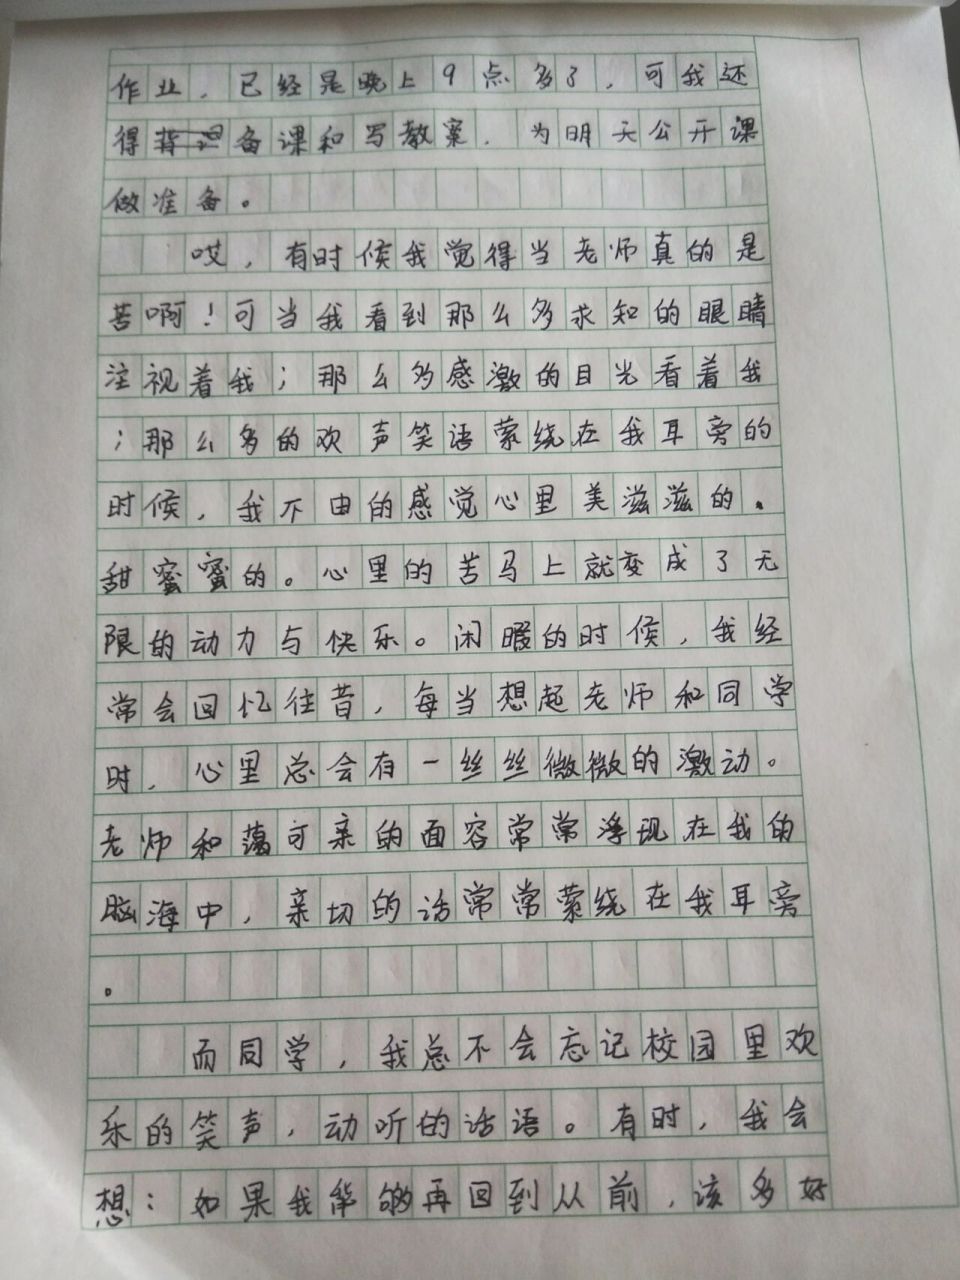 作业，已经是晚上9点多了，可我还
得备课和写教案，为明天公开课
做准备。
哎，有时候我觉得当老师真的是
苦啊！可当我看到那么多求知的眼睛
注视着我；那么多感激的目光看着我
；那么多的欢声笑语萦绕在我耳旁的
时候，我不由的感觉心里美滋滋的。
甜蜜蜜的。心里的苦马上就变成了无
限的动力与快乐。闲暇的时候，我经
常会回忆往昔，每当想起老师和同学
时，心里总会有一丝丝微微的激动。
老师和蔼可亲的面容常常浮现在我的
脑海中，亲切的话常常萦绕在我耳旁
。
而同学，我总不会忘记校园里欢
乐的笑声，动听的话语。有时，我会
想：如果我能够再回到从前，该多好